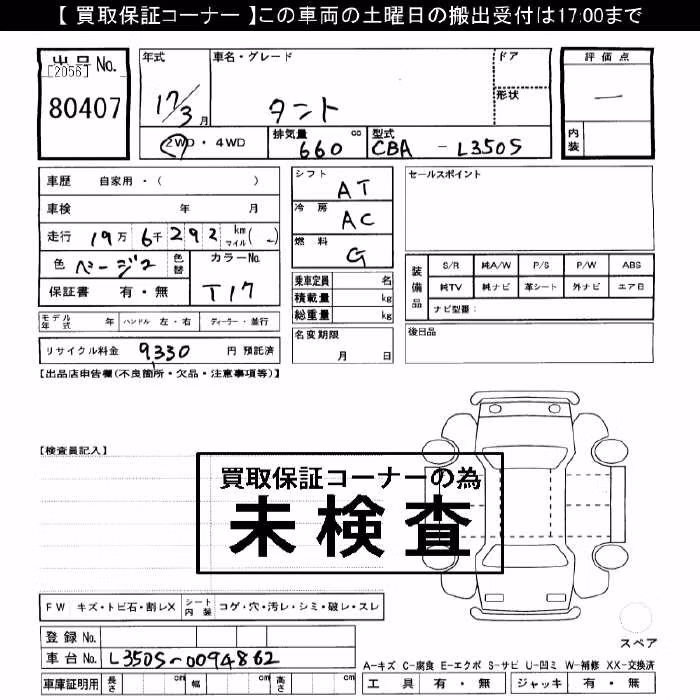 【 買取保証コーナー 】この車両の土曜日の搬出受付は17:00まで
出品No.
[2056]
80407
年式
17/3月
車名・グレード
タント
ドア
形状
評価点
―
内装
2WD・4WD
排気量 660 cc
型式 CBA - L350S
車歴 自家用・( )
車検 年 月
走行 19万6千292 km マイル( - )
色 ベージュ 色替
カラーNo. T17
保証書 有・無
モデル年式 年 ハンドル 左・右 ディーラー・並行
リサイクル料金 9330 円 預託済
シフト AT
冷房 AC
燃料 G
乗車定員 名
積載量 kg
総重量 kg
名変期限 月 日
セールスポイント
装備品
S/R 純A/W P/S P/W ABS
純TV 純ナビ 革シート 外ナビ エアB
ナビ型番:
後日品
【出品店申告欄(不良箇所・欠品・注意事項等)】
【検査員記入】
買取保証コーナーの為
未検査
FW キズ・トビ石・割レX シート内装 コゲ・穴・汚レ・シミ・破レ・スレ
登録No.
車台No. L350S-0094862
車庫証明用 長さ cm 幅 cm 高さ cm
スペア
A-キズ C-腐食 E-エクボ S-サビ U-凹ミ W-補修 XX-交換済
工具 有・無 ジャッキ 有・無